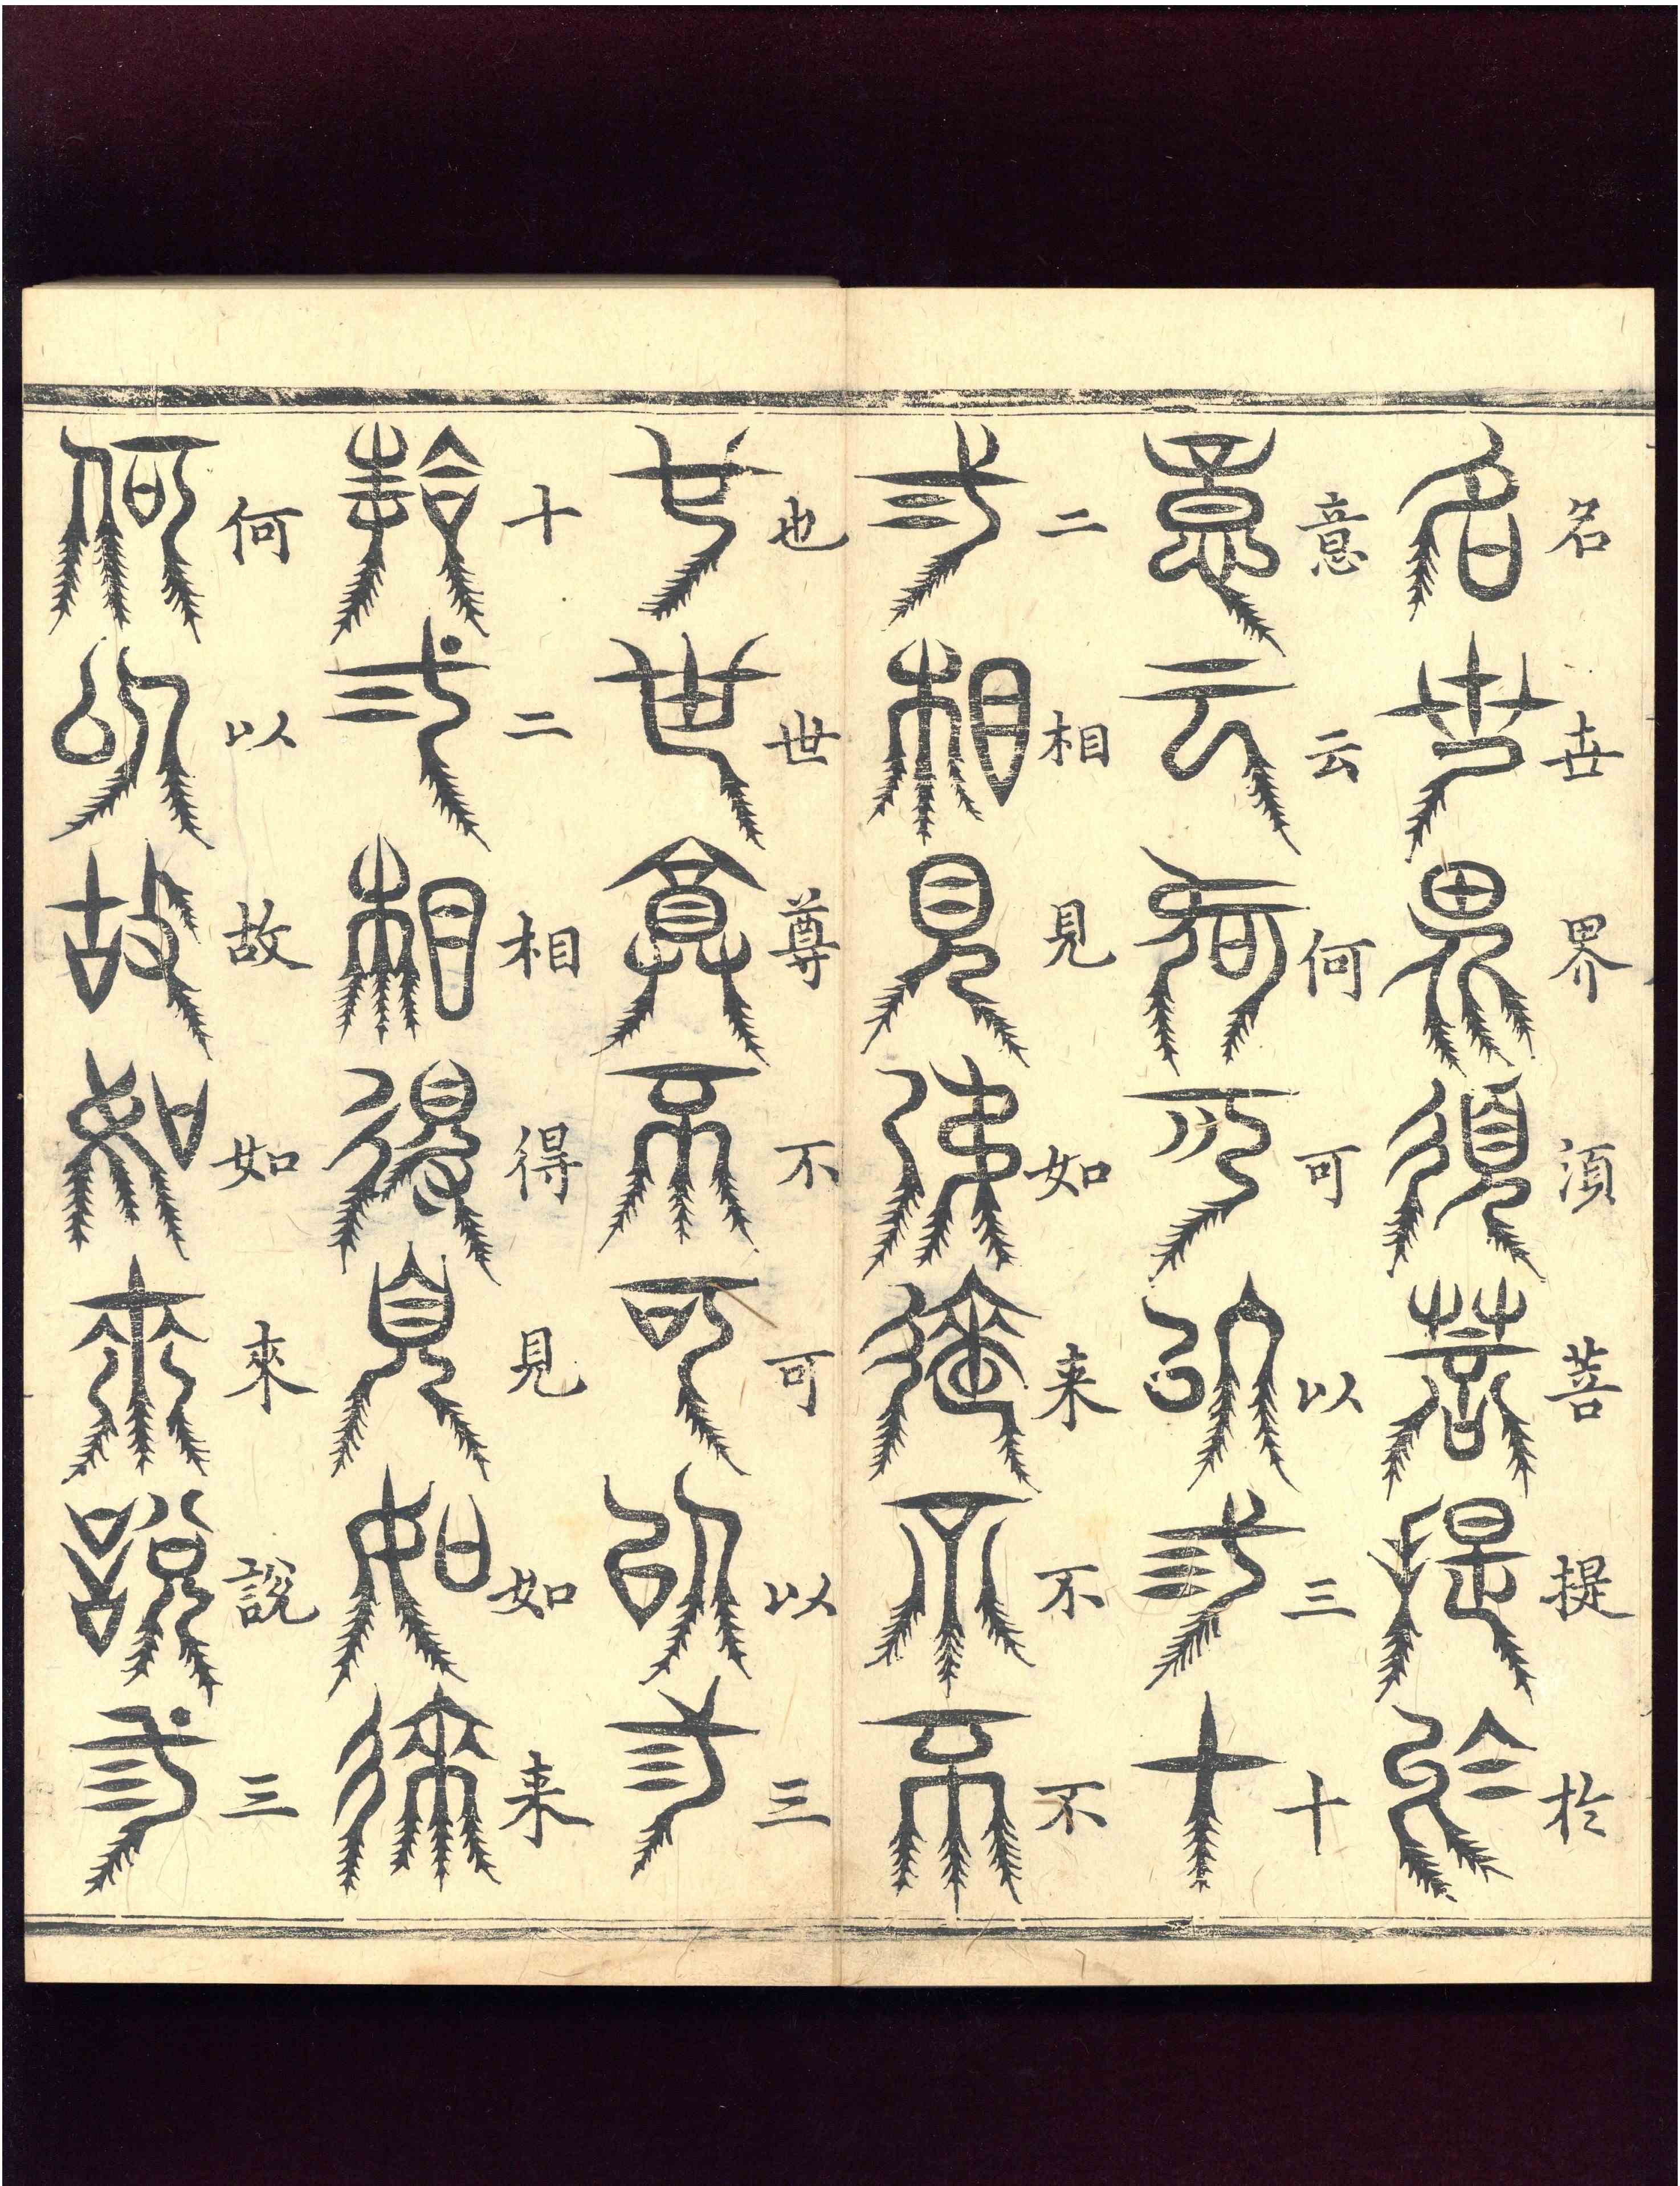 名世界須菩提於
意云何可以三十
二相見如来不不
也世尊不可以三
十二相得見如来
何以故如來說三